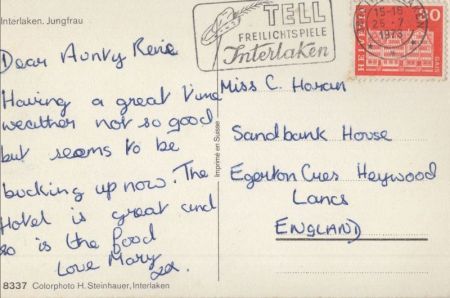 Interlaken, Jungfrau
Dear Aunty Renie
Having a great time
weather not so good
but seems to be
bucking up now. The
Hotel is great and
so is the food
Love Mary
8337 Colorphoto H. Steinhauer, Interlaken
Imprimé en Suisse
TELL
FREILICHTSPIELE
Interlaken
15-18
26-7
1973
HELVETIA
30
GAIS
Miss C. Horan
Sandbank House
Egerton Cres Heywood
Lancs
ENGLAND